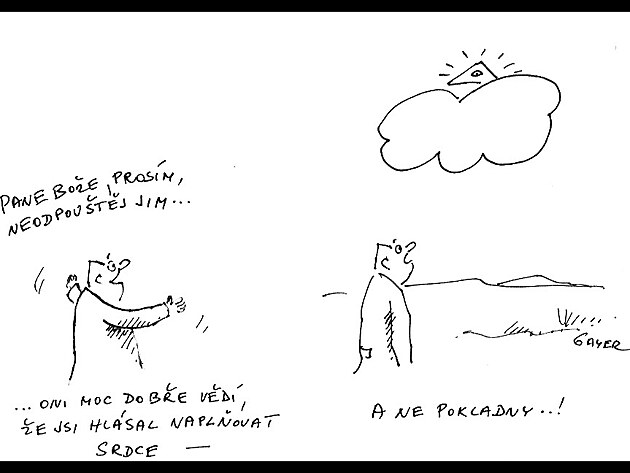 PANE BOŽE, PROSÍM,
NEODPOUŠTĚJ JIM...
...ONI MOC DOBŘE VĚDÍ,
ŽE JSI HLÁSAL NAPLŇOVAT
SRDCE —
A NE POKLADNY..!
GAYER